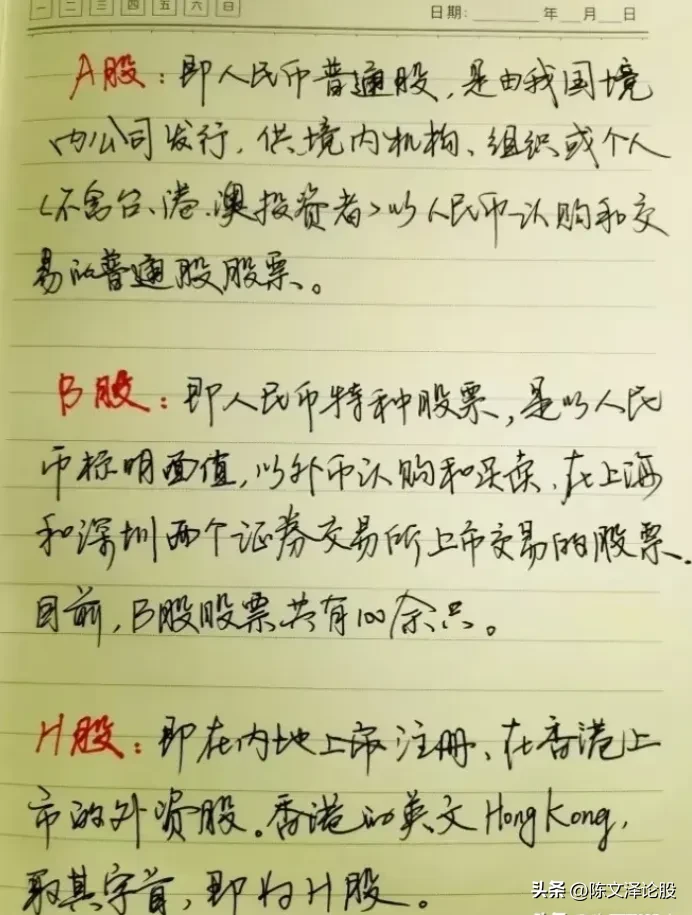 一 二 三 四 五 六 日
日期: 年 月 日
A股：即人民币普通股，是由我国境
内公司发行，供境内机构、组织或个人
（不含台、港、澳投资者）以人民币认购和交
易的普通股股票。
B股：即人民币特种股票，是以人民
币标明面值，以外币认购和买卖、在上海
和深圳两个证券交易所上市交易的股票.
目前，B股股票共有100余只。
H股：即在内地上市注册、在香港上
市的外资股。香港的英文HongKong，
取其字首，即为H股。
头条 @陈文泽论股